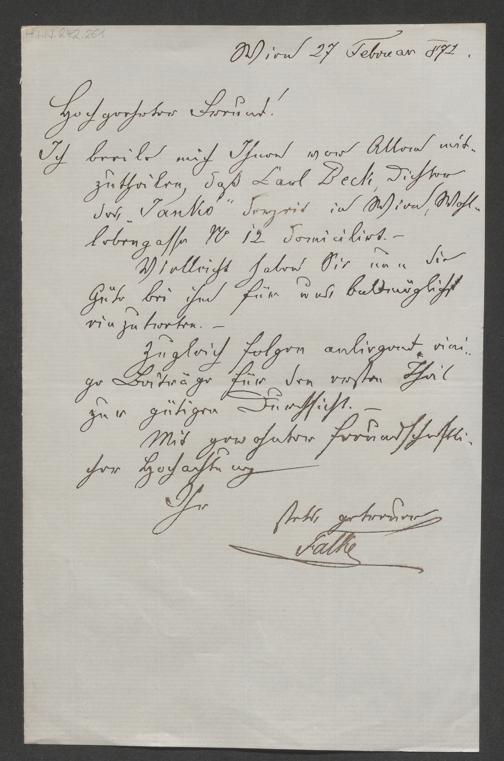 H.I.N. 242.261
Wien 27 Februar 872.
Hochgeehrter Freund!
Ich beeile mich Ihnen vor Allem mit-
zutheilen, daß Carl Beck, Dichter
des „Janko" derzeit in Wien, Wohl-
lebengasse No 12 domicilirt.—
Vielleicht haben Sie nun die
Güte bei ihm für uns baldmöglichst
einzutreten.—
Zugleich folgen anliegend eini-
ge Beiträge für den ersten Theil
zur gütigen Durchsicht.—
Mit gewohnter freundschaftli-
cher Hochachtung
Ihr
stets getreuer
Falke